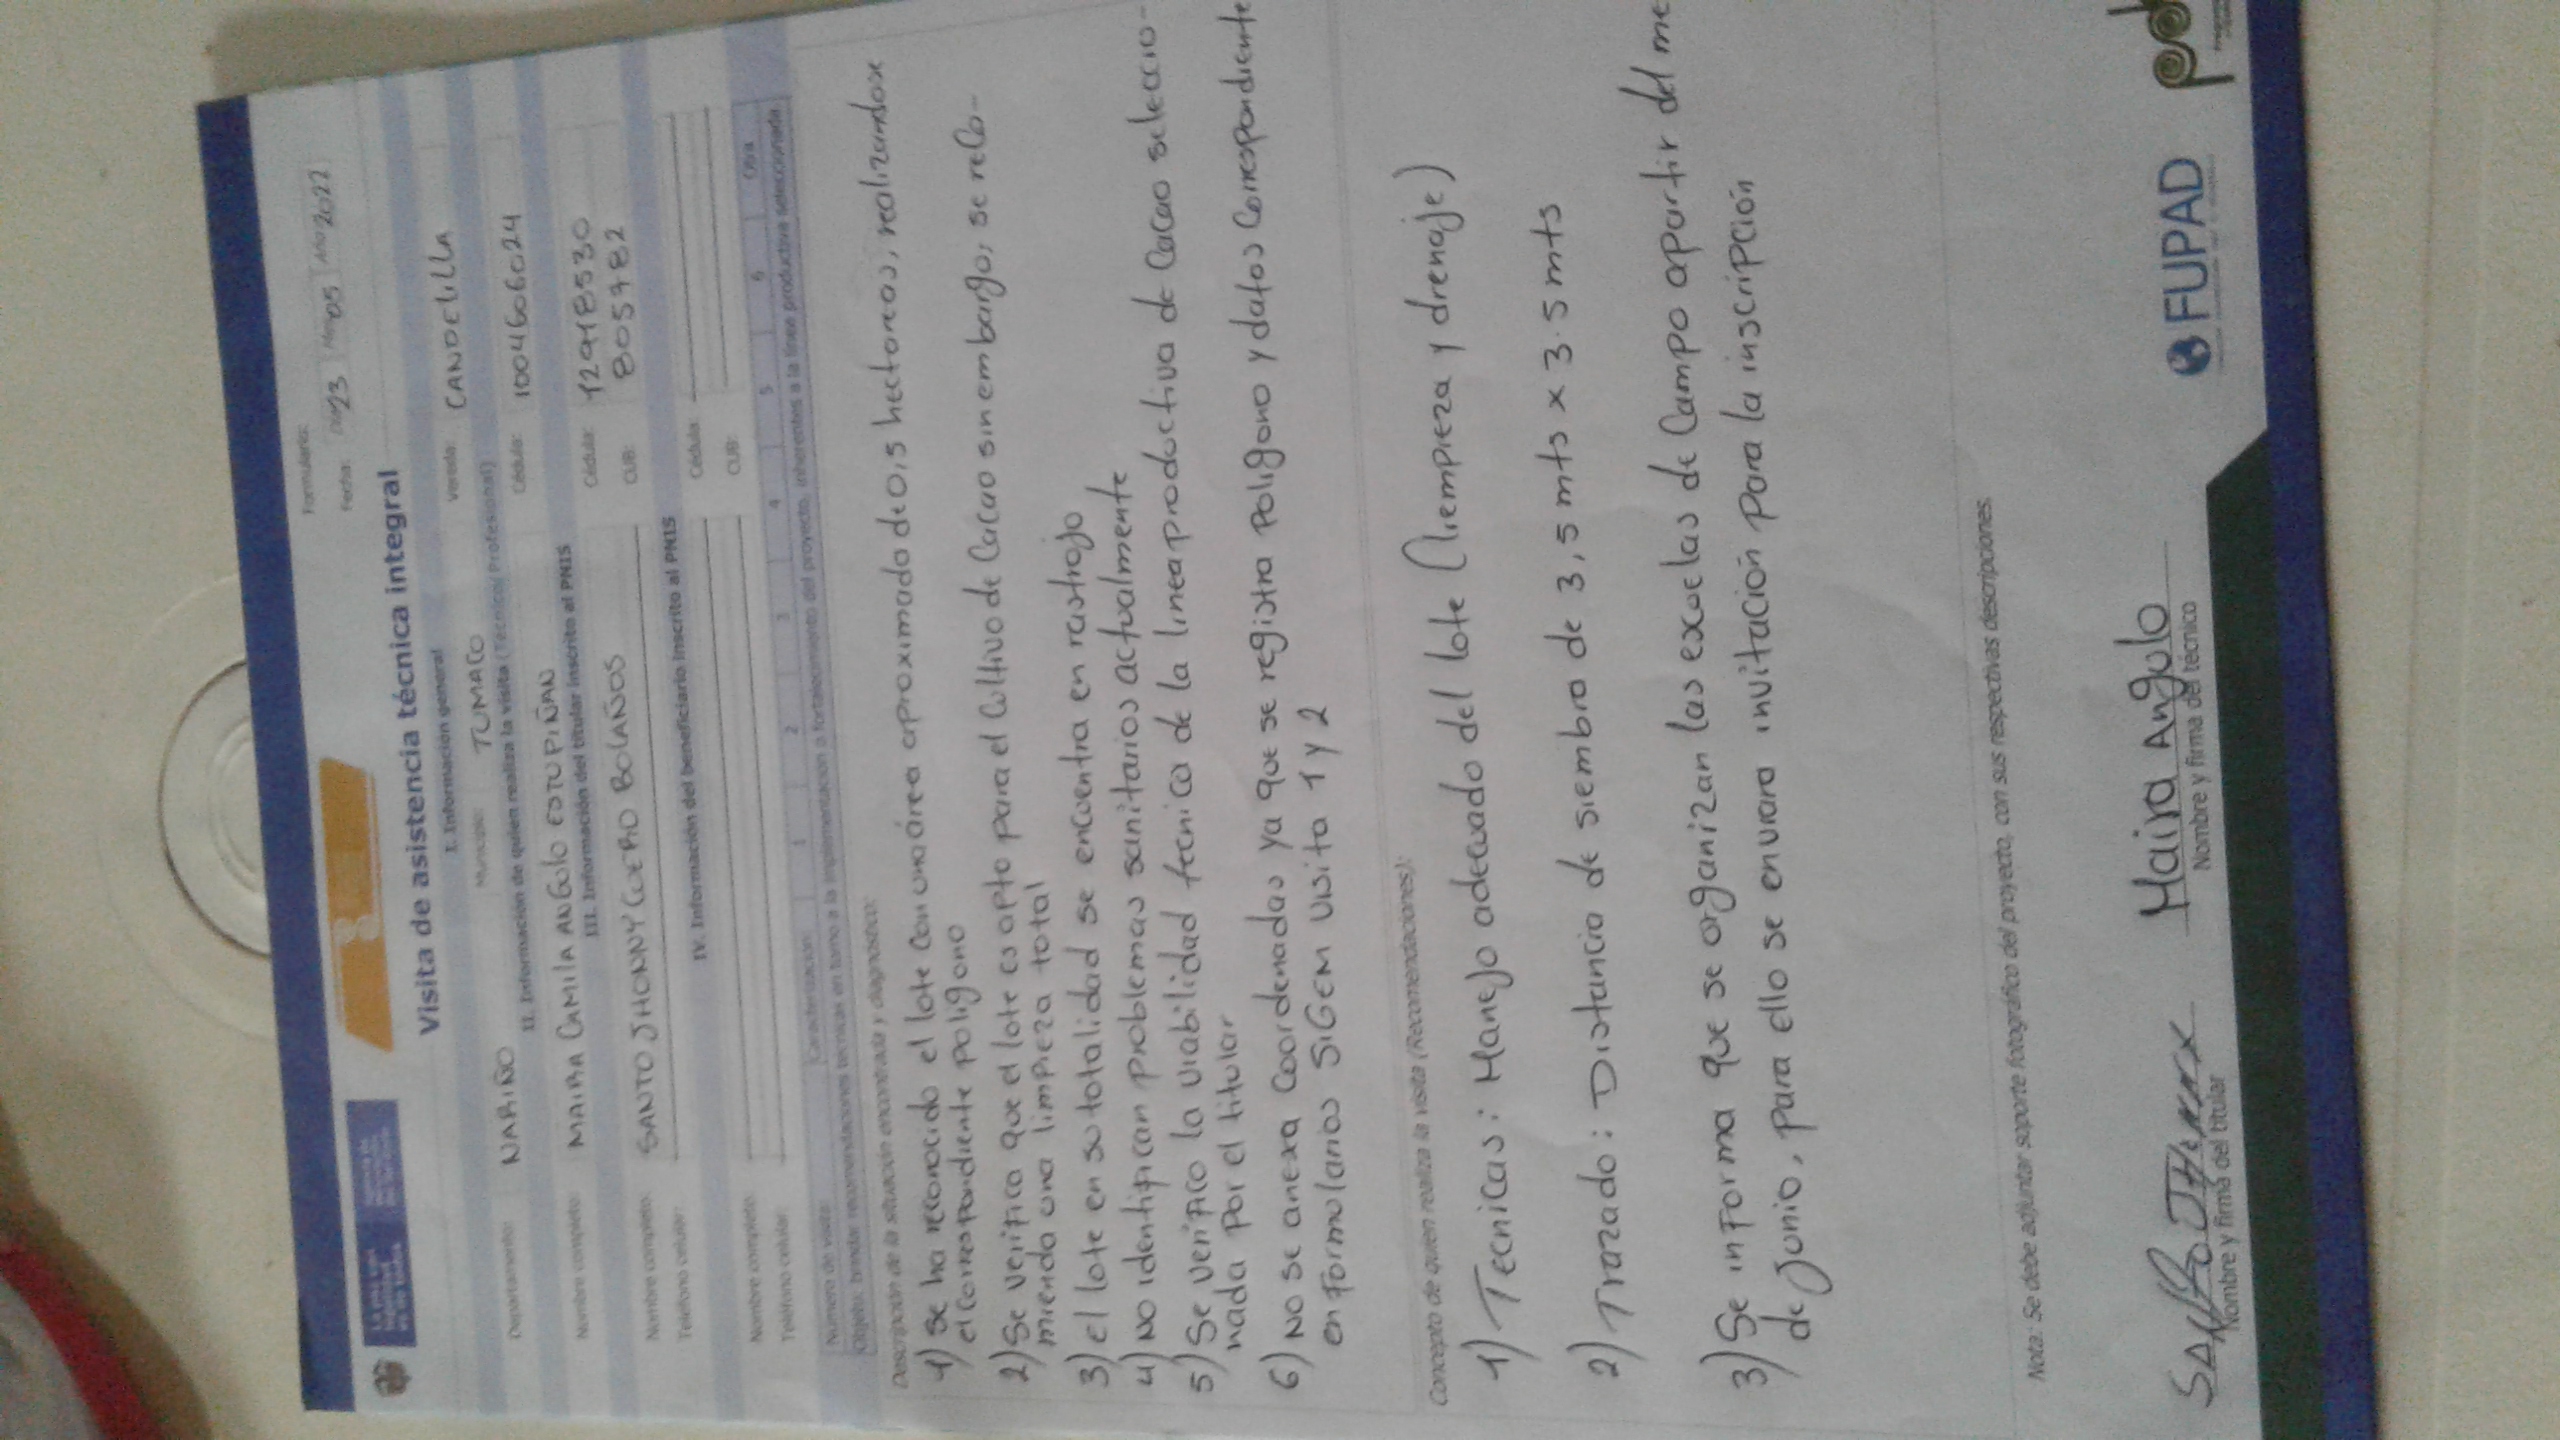 Formulario:
Fecha: Día 23 Mes 05 Año 2022
Visita de asistencia técnica integral
I. Información general
Departamento: NARIÑO Municipio: TUMACO Vereda: CANDELILLA
II. Información de quien realiza la visita (Técnico/Profesional)
Nombre completo: MAIRA CAMILA ANGULO ESTUPIÑAN Cédula: 1004606024
III. Información del titular inscrito al PNIS
Nombre completo: SANTO JHONNY CUERO BOLAÑOS Cédula: 12918530
Teléfono celular: CUB: 8057782
IV. Información del beneficiario inscrito al PNIS
Nombre completo: Cédula:
Teléfono celular: CUB:
Número de visita: Caracterización 1 2 3 4 5 6 Otra
Objeto: brindar recomendaciones técnicas en torno a la implementación o fortalecimiento del proyecto, inherentes a la línea productiva seleccionada
Descripción de la situación encontrada y diagnóstico:
1) Se ha reconocido el lote con una área aproximado de 0,5 hectareas, realizandose
el correspondiente poligono
2) Se verifico que el lote es apto para el cultivo de cacao sin embargo, se reco-
mienda una limpieza total
3) el lote en su totalidad se encuentra en rastrojo
4) No identifican problemas sanitarios actualmente
5) Se verifico la viabilidad tecnica de la linea productiva de cacao seleccio-
nada por el titular
6) No se anexa coordenadas ya que se registra poligono y datos correspondiente
en formularios SIGEM visita 1 y 2
Concepto de quien realiza la visita (Recomendaciones):
1) Tecnicas: Manejo adecuado del lote (liempieza y drenaje)
2) Trazado: Distancia de siembra de 3,5 mts x 3.5 mts
3) Se informa que se organizan las escuelas de campo apartir del me
de junio, para ello se enviara invitación para la inscripción
Nota: Se debe adjuntar soporte fotográfico del proyecto, con sus respectivas descripciones.
Maira Angulo
Nombre y firma del titular Nombre y firma del técnico
FUPAD